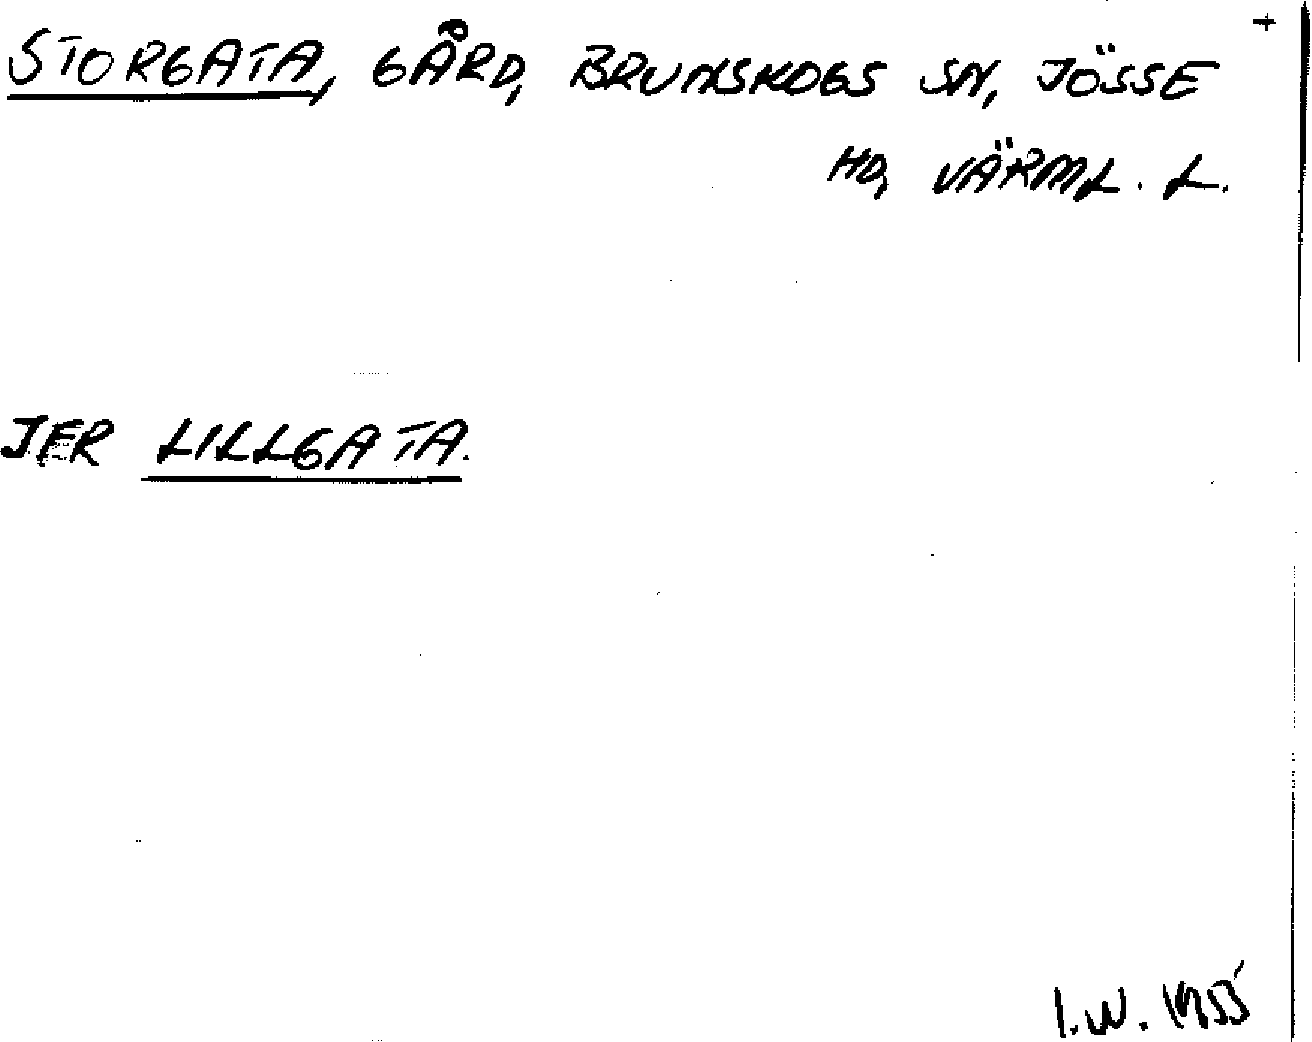 +
STORGATA, GÅRD, BRUNSKOGS SN, JÖSSE
HD, VÄRML. L.
JFR LILLGATA.
I.W. 1955